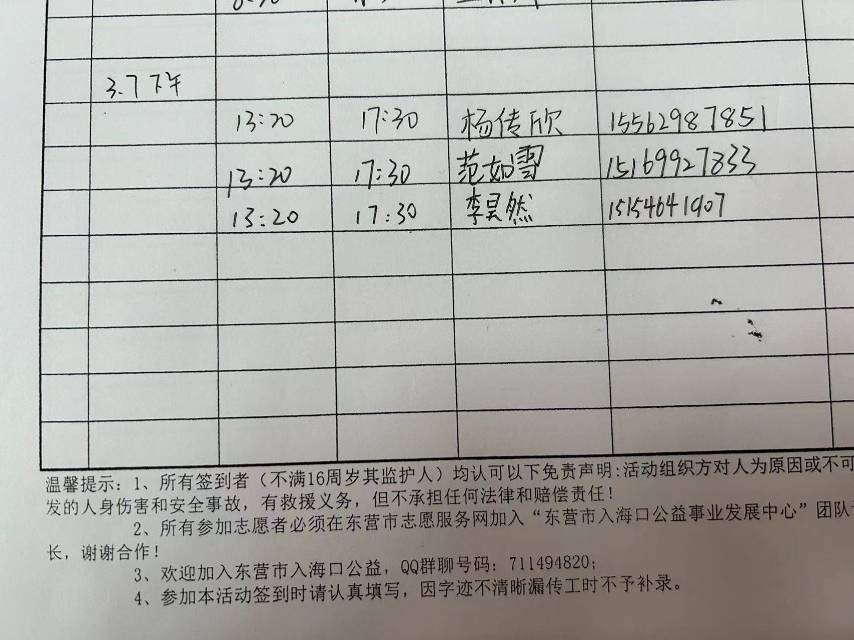 3.7下午
13:20 17:30 杨传欣 15562987851
13:20 17:30 范如雪 15169927833
13:20 17:30 李昊然 15154641907
温馨提示：1、所有签到者（不满16周岁其监护人）均认可以下免责声明:活动组织方对人为原因或不可
发的人身伤害和安全事故，有救援义务，但不承担任何法律和赔偿责任！
2、所有参加志愿者必须在东营市志愿服务网加入“东营市入海口公益事业发展中心”团队
长，谢谢合作！
3、欢迎加入东营市入海口公益，QQ群聊号码：711494820；
4、参加本活动签到时请认真填写，因字迹不清晰漏传工时不予补录。